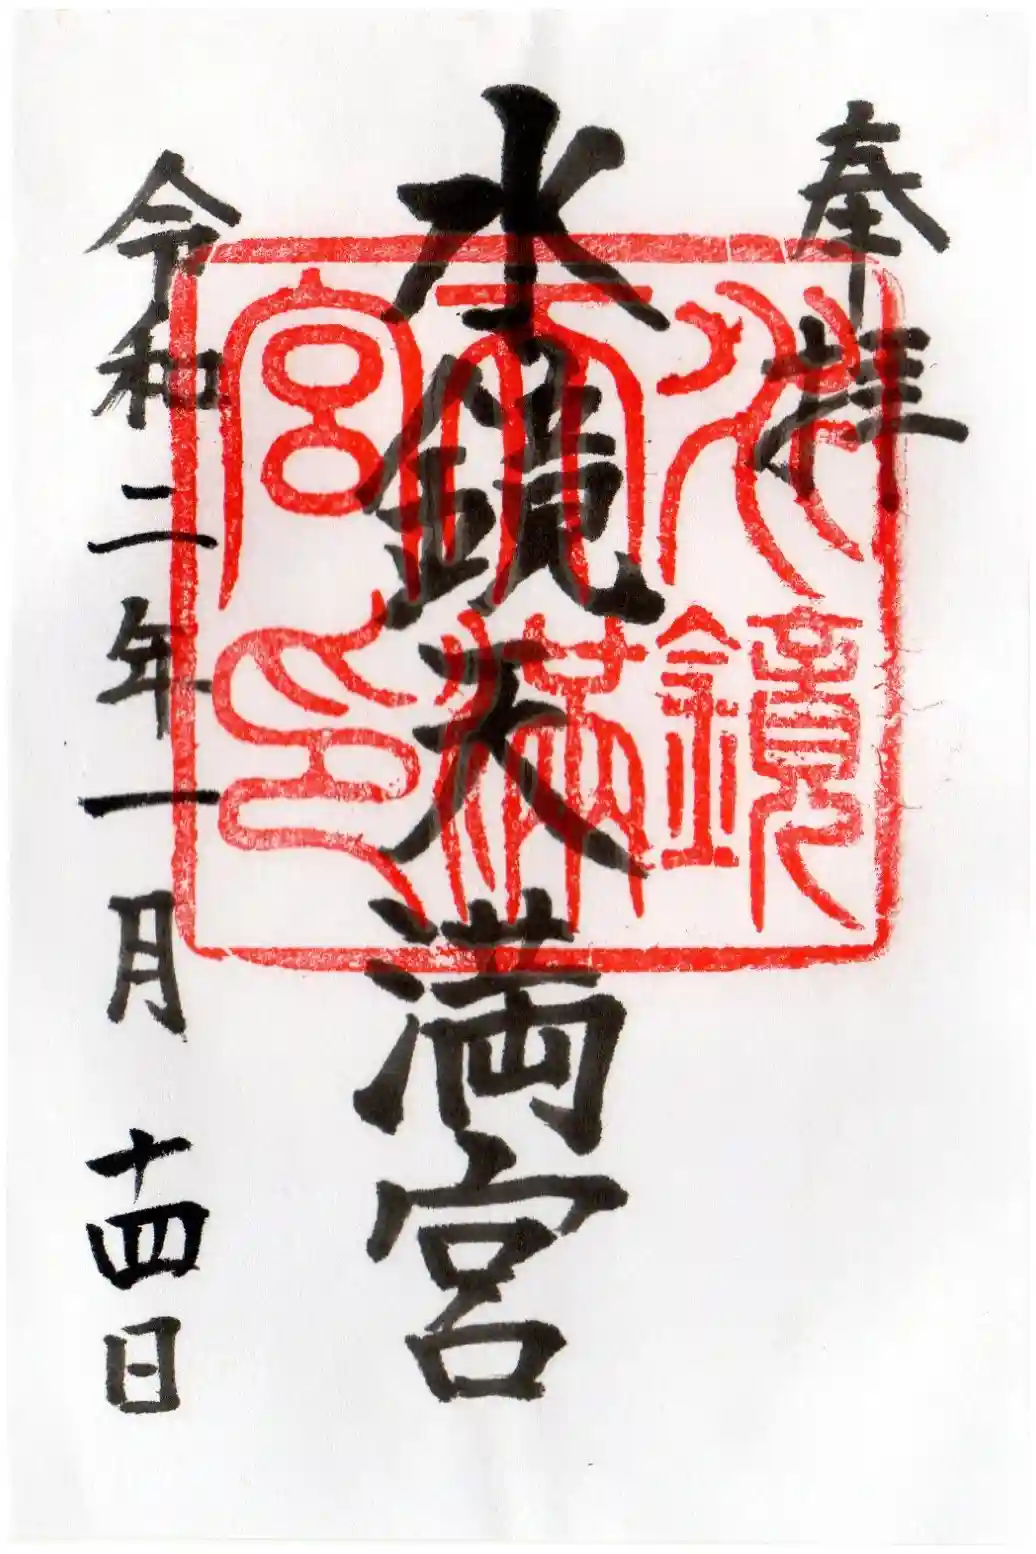 奉拝
水鏡天満宮
令和二年一月十四日
水鏡
天満
宮印